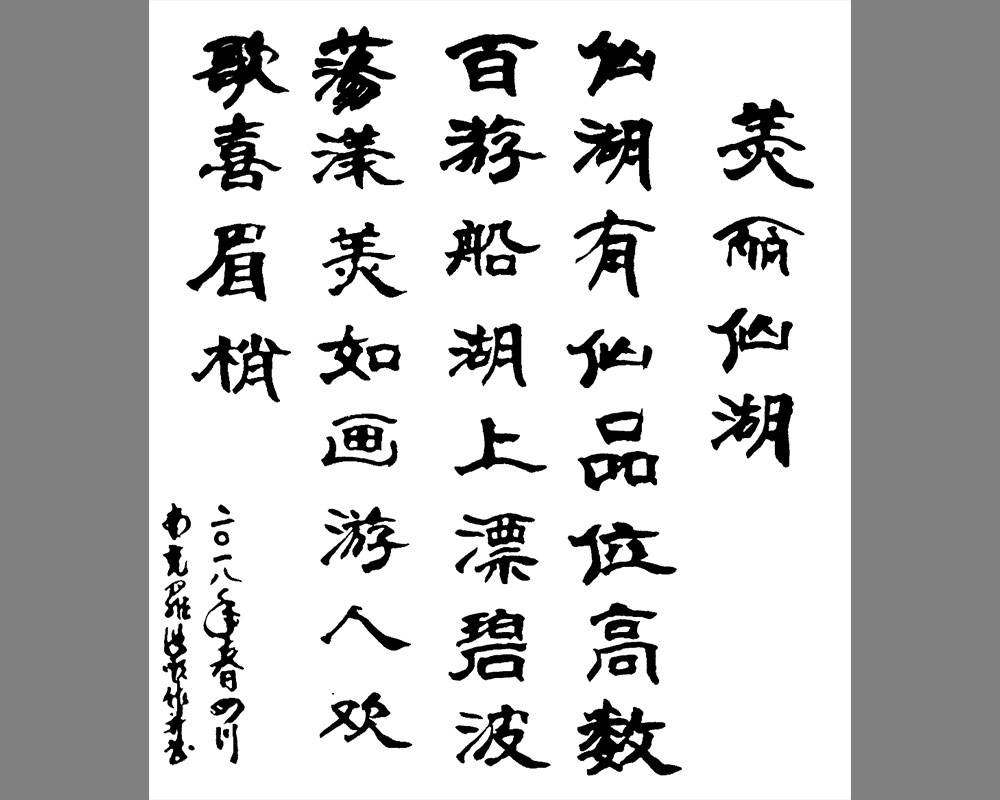 美丽仙湖
仙湖有仙品位高数
百游船湖上漂碧波
荡漾美如画游人欢
歌喜眉梢
二〇一八年春四川
南充罗洪顺作并书